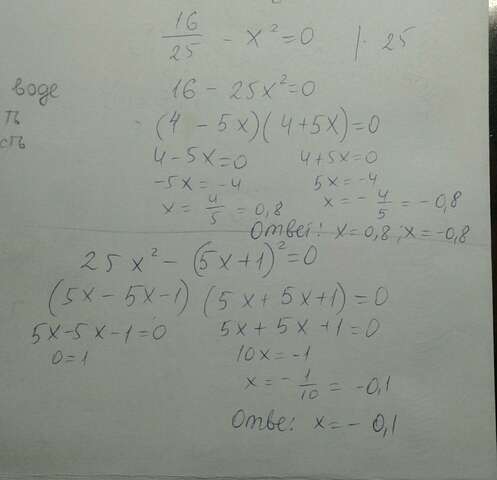 16/25 - x² = 0 | · 25
воде
16 - 25x² = 0
ть
(4 - 5x)(4+5x)=0
сть
4-5x=0 4+5x=0
-5x = -4 5x = -4
x = 4/5 = 0,8 x = - 4/5 = - 0,8
Ответ: x=0,8; x=-0,8
25x² - (5x+1)² = 0
(5x - 5x-1) (5x + 5x+1) = 0
5x-5x-1=0 5x+5x+1=0
0=1 10x = -1
x = - 1/10 = -0,1
Ответ: x = - 0,1